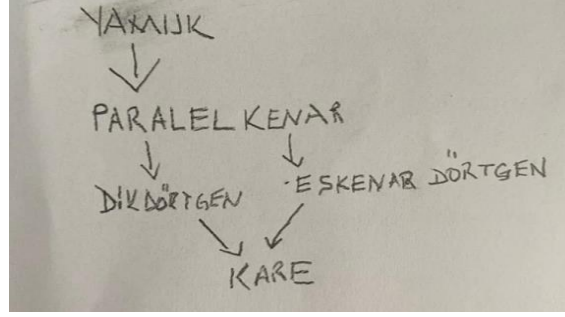 YAMUK
PARALELKENAR
DİKDÖRTGEN ESKENAR DÖRTGEN
KARE